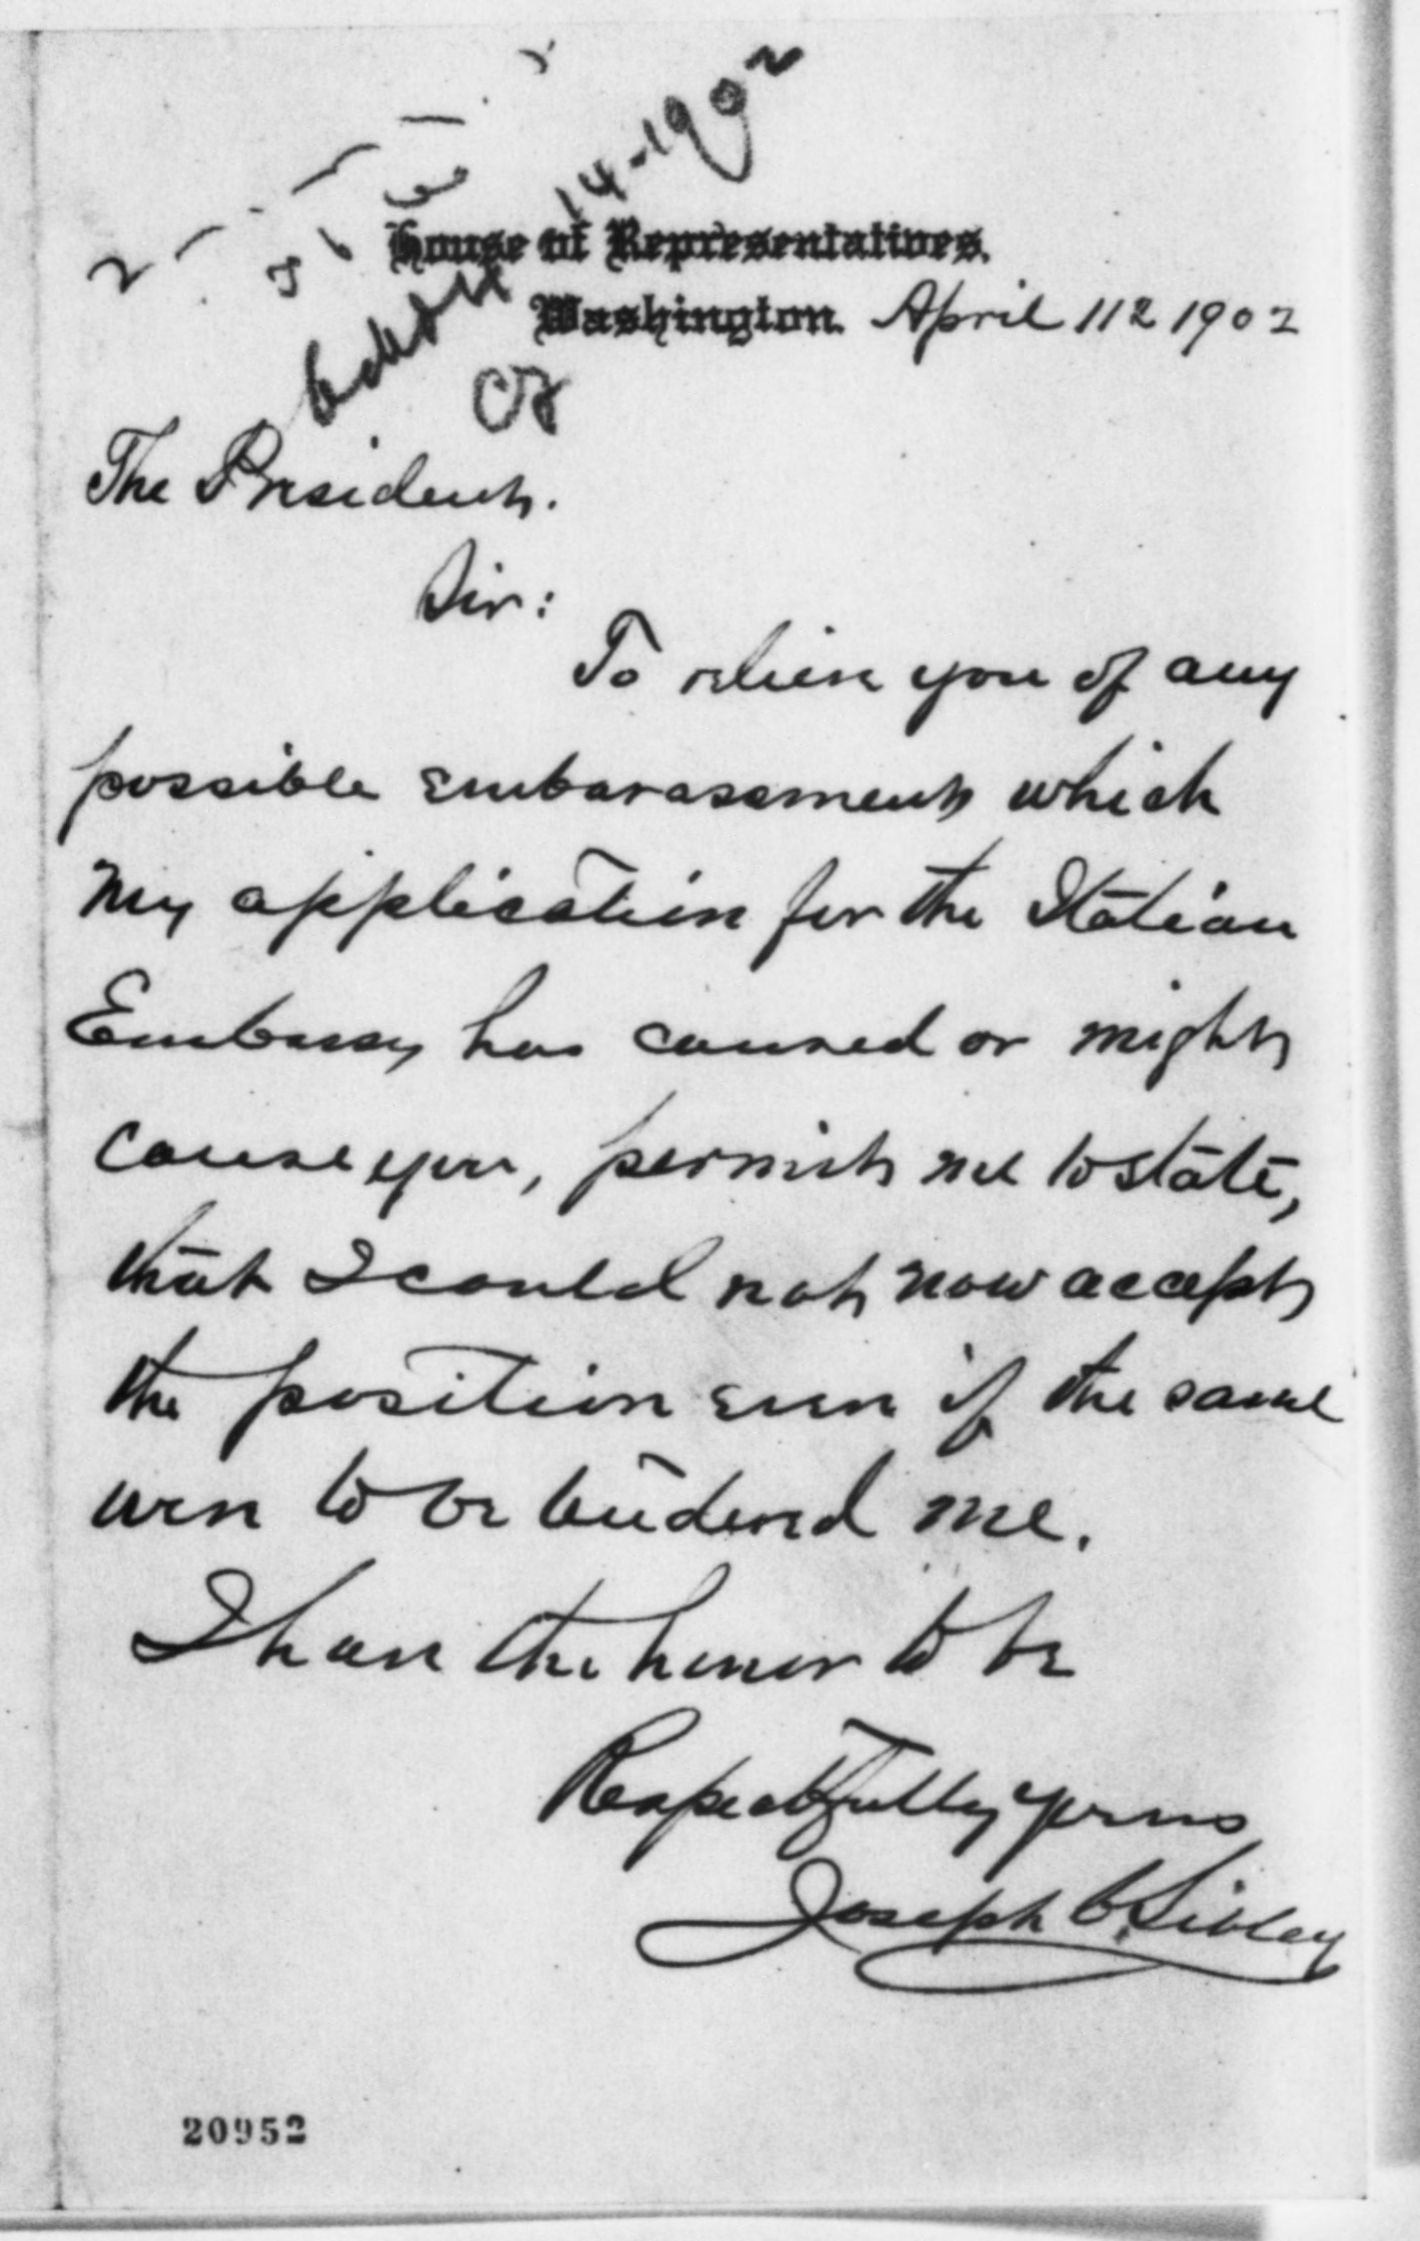 14-1902
House of Representatives.
Washington. April 112 1902
The President.
Sir:
To relieve you of any
possible embarassment which
my application for the Italian
Embassy has caused or might
cause you, permit me to state,
that I could not now accept
the position even if the same
were to be tendered me.
I have the honor to be
Respectfully yours
Joseph C. Sibley
20952